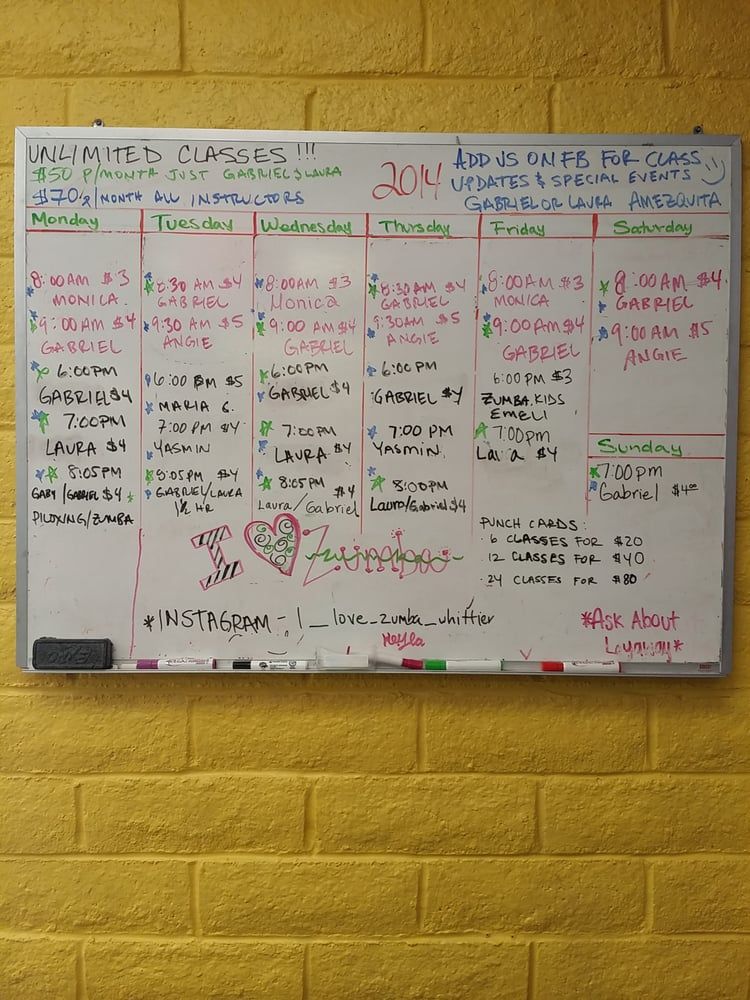 UNLIMITED CLASSES !!!
$50 P/MONTH JUST GABRIEL & LAURA
$70 MONTH ALL INSTRUCTORS
2014
ADD US ON FB FOR CLASS
UPDATES & SPECIAL EVENTS
GABRIEL OR LAURA AMEZQUITA
Monday
8:00AM $3
MONICA
9:00AM $4
GABRIEL
6:00PM
GABRIEL $4
7:00PM
LAURA $4
8:05PM
GABY/GABRIEL $4
PILOXING/ZUMBA
Tuesday
8:30 AM $4
GABRIEL
9:30 AM $5
ANGIE
6:00 PM $5
MARIA G.
7:00 PM $4
YASMIN
8:05PM $4
GABRIEL/LAURA
1½ HR
Wednesday
8:00AM $3
Monica
9:00 AM $4
GABRIEL
6:00PM
GABRIEL $4
7:00PM
LAURA $4
8:05PM
$4
Laura/Gabriel
Thursday
8:30AM $4
GABRIEL
9:30AM $5
ANGIE
6:00PM
GABRIEL $4
7:00 PM
YASMIN
8:00PM
Laura/Gabriel $4
Friday
8:00AM $3
MONICA
9:00AM $4
GABRIEL
6:00 PM $3
ZUMBA KIDS
EMELI
7:00pm
Laura $4
Saturday
8:00AM $4
GABRIEL
9:00AM $5
ANGIE
Sunday
7:00pm
Gabriel $4.00
PUNCH CARDS:
6 CLASSES FOR $20
12 CLASSES FOR $40
24 CLASSES FOR $80
I Zumba
*INSTAGRAM - I_love_zumba_whittier
Neyla
*Ask About
Layaway*
EXPO